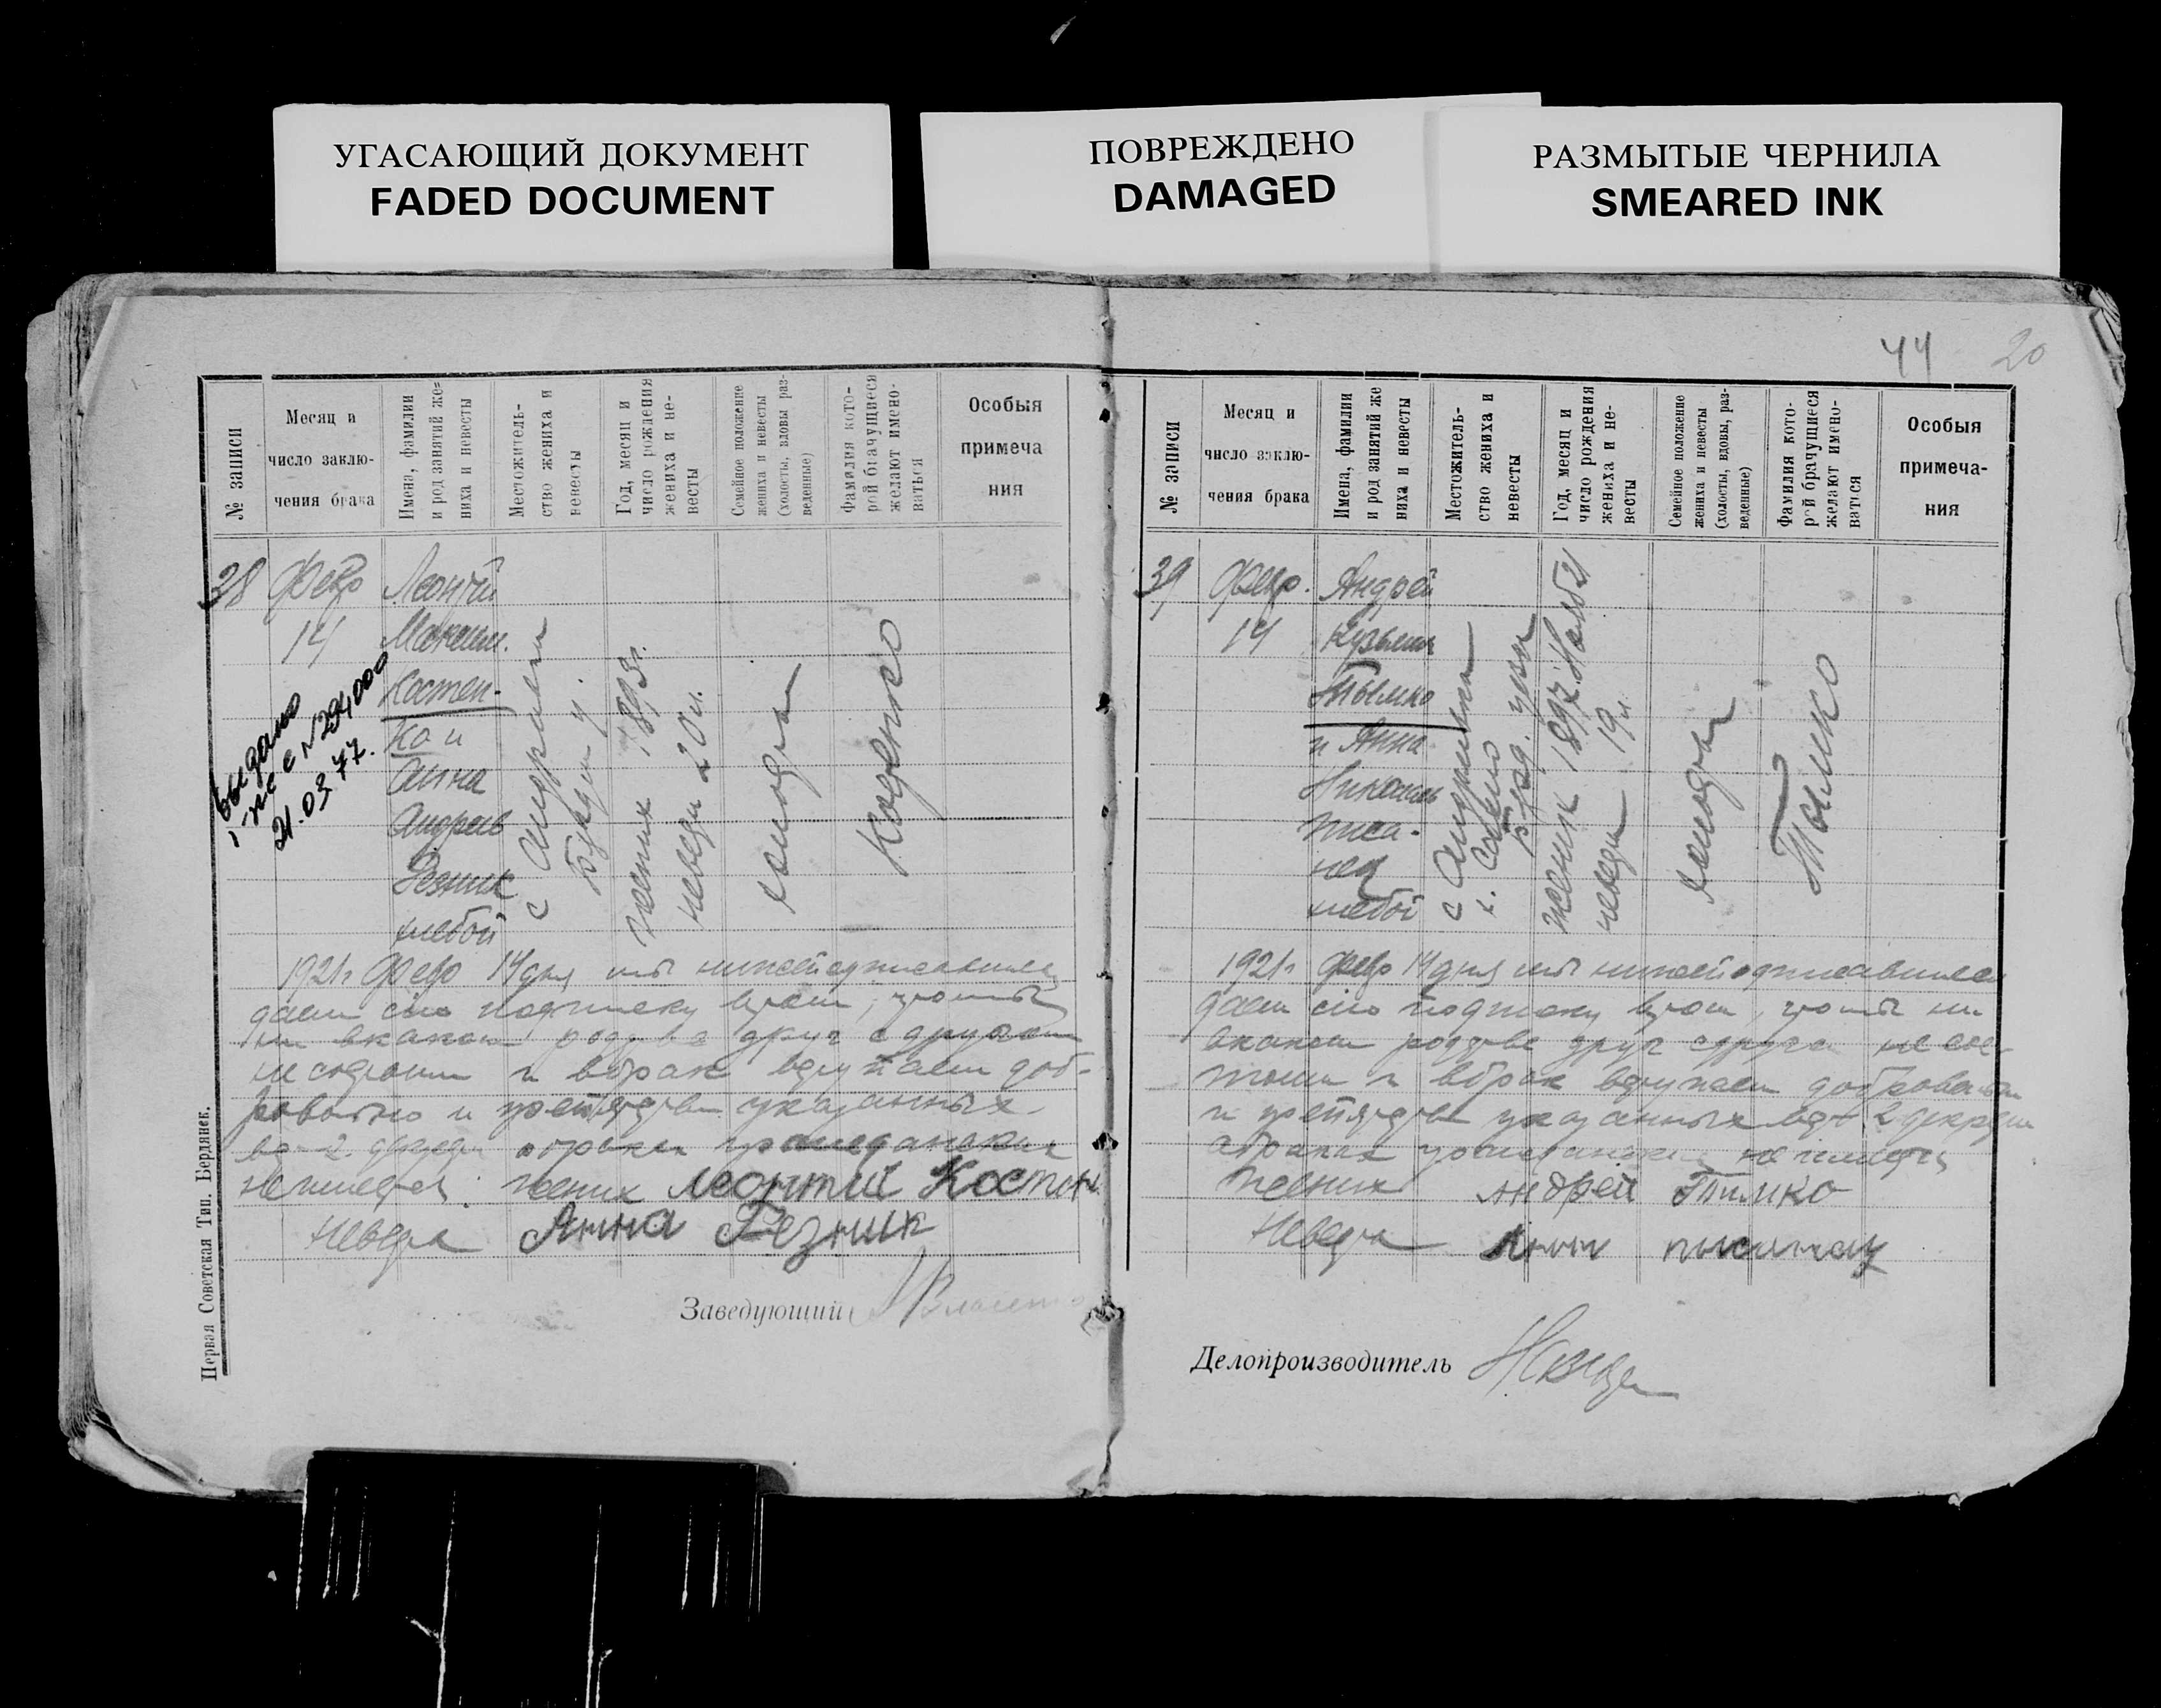 УГАСАЮЩИЙ ДОКУМЕНТ
FADED DOCUMENT
ПОВРЕЖДЕНО
DAMAGED
РАЗМЫТЫЕ ЧЕРНИЛА
SMEARED INK
44 20
№ записи
Месяц и
число заклю-
чения брака
Имена, фамилии
и род занятий же-
ниха и невесты
Местожитель-
ство жениха и
невесты
Год, месяц и
число рождения
жениха и не-
весты
Семейное положение
жениха и невесты
(холосты, вдовы, раз-
веденные)
Фамилия кото-
рой брачущиеся
желают имено-
ваться
Особыя
примеча
ния
38
Февр
14
Леонтий
Максим.
Костен-
ко и
Анна
Андреев
Резник
хлебой
с Андреевка
Бердян у.
жених 1893 г.
невеста 20 л.
холодны
Костенко
выдано
21.03.77.
1921 г Февр 14 дня мы нижеподписавшиеся
даем сию подписку в том, что мы
ни в каком родстве друг с другом
не состоим и в брак вступаем доб-
ровольно и препятствий указанных
в ст 2 декрета о браках гражданских
не имеется. жених Леонтий Костен
Невеста Анна Резник
Заведующий
Первая Советская Тип. Бердянск.
№ записи
Месяц и
число заклю-
чения брака
Имена, фамилии
и род занятий же
ниха и невесты
Местожитель-
ство жениха и
невесты
Год, месяц и
число рождения
жениха и не-
весты
Семейное положение
жениха и невесты
(холосты, вдовы, раз-
веденные)
Фамилия кото-
рой брачущиеся
желают имено-
ваться
Особыя
примеча-
ния
39
Февр.
14
Андрей
Кузьмич
Тымко
и Анна
Николаев
Писа-
нец
хлебой
с Андреевка
Берд. уезд
жених 1897 г.
невеста 19 л.
холодны
Тымко
1921 г Февр 14 дня мы нижеподписавшиеся
даем сию подписку в том, что мы ни
в каком родстве друг с другом не сос-
тоим и в брак вступаем добровольно
и препятствий указанных в ст 2 декрета
о браках гражданских не имеется
Жених Андрей Тимко
Невеста Анна писанец
Делопроизводитель